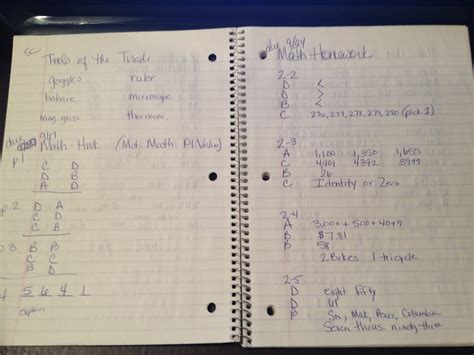 SC
Tools of the Trade
goggles ruler
balance microscope
mag. glass thermom.
due 9/17
Math - Hwk (Mod. Math Pl Value)
p1
C D
D D
A D
p. 2 D A
C D
C B
p. 3 B B
C C
B D
4 5 6 4 1
explain
due 9/24
Math Homework
2-2
D <
D >
B <
C 276, 277, 278, 279, 280 (pick 1)
2-3
A 1,100 1,350 1,655
C 4401 4392 5997
B 26
C Identity or Zero
2-4
A 3,000 + 500 + 40 + 9
B $7.81
B 58
2 Bikes 1 tricycle
2-5
D eight fifty
D 61
B Sn, Mak, Peace, Columbia
Seven thous. ninety three